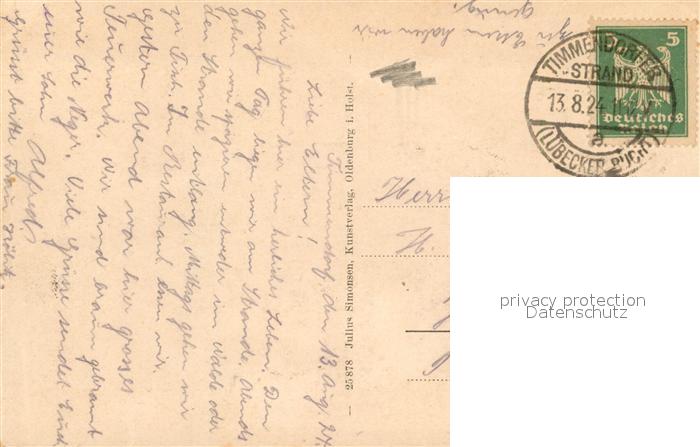 Timmendorf, den 13. Aug. 24.
Liebe Eltern!
Wir führen hier ein herrliches Leben. Den
ganzen Tag liegen wir am Strande. Abends
gehen wir spazieren entweder im Walde oder
den Strande entlang. Mittags gehen wir
zu Tisch. Im Restaurant kann wir.
Gestern Abend war hier grosses
Feuerwerk. Wir sind braun gebrannt
wie die Neger. Viele Grüsse sendet Euch
Euer Sohn Alfred.
Grüsst bitte
zu Essen haben wir
genug.
— 25878 Julius Simonsen, Kunstverlag, Oldenburg i. Holst. —
TIMMENDORFER
STRAND
13.8.24
a
(LÜBECKER BUCHT)
5 5
Deutsches
Reich
Herr
H.
privacy protection
Datenschutz